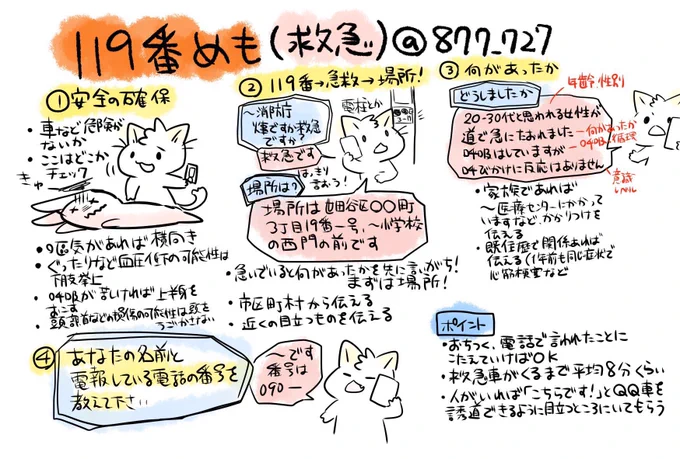 119番めも(救急)@877_727
①安全の確保
・車など危険が
ないか
・ここはどこか
チェック
きゅ
・嘔気があれば横向き
・ぐったりなど血圧低下の可能性は
下肢挙上
・呼吸が苦しければ上半身を
おこす
・頭頸部などの損傷の可能性は頭を
うごかさない
②119番→急救→場所!
～消防庁
火事ですか救急
ですか?
救急です
電柱とか
はっきり
言おう!
場所は?
場所は世田谷区〇〇町
3丁目19番一号、～小学校
の西門の前です
・急いでいると何があったかを先に言いがち!
まずは場所!
・市区町村から伝える
・近くの目立つものを伝える
③何があったか
年齢、性別
どうしましたか
20-30代と思われる女性が
道で急にたおれました
呼吸はしていますが
呼びかけに反応はありません
何があったか
呼吸、循環
意識
レベル
・家族であれば
～医療センターにかかって
いますなど、かかりつけを
伝える
・既往歴で関係あれば
伝える(1年前も同じ症状で
心筋梗塞など
④あなたの名前と
電報している電話の番号を
教えて下さい
～です
番号は
090ー
ポイント
・おちつく、電話で言われたことに
こたえていけばOK
・救急車がくるまで平均8分くらい
・人がいれば「こちらです!」とQQ車を
誘導できるように目立つところにいてもらう